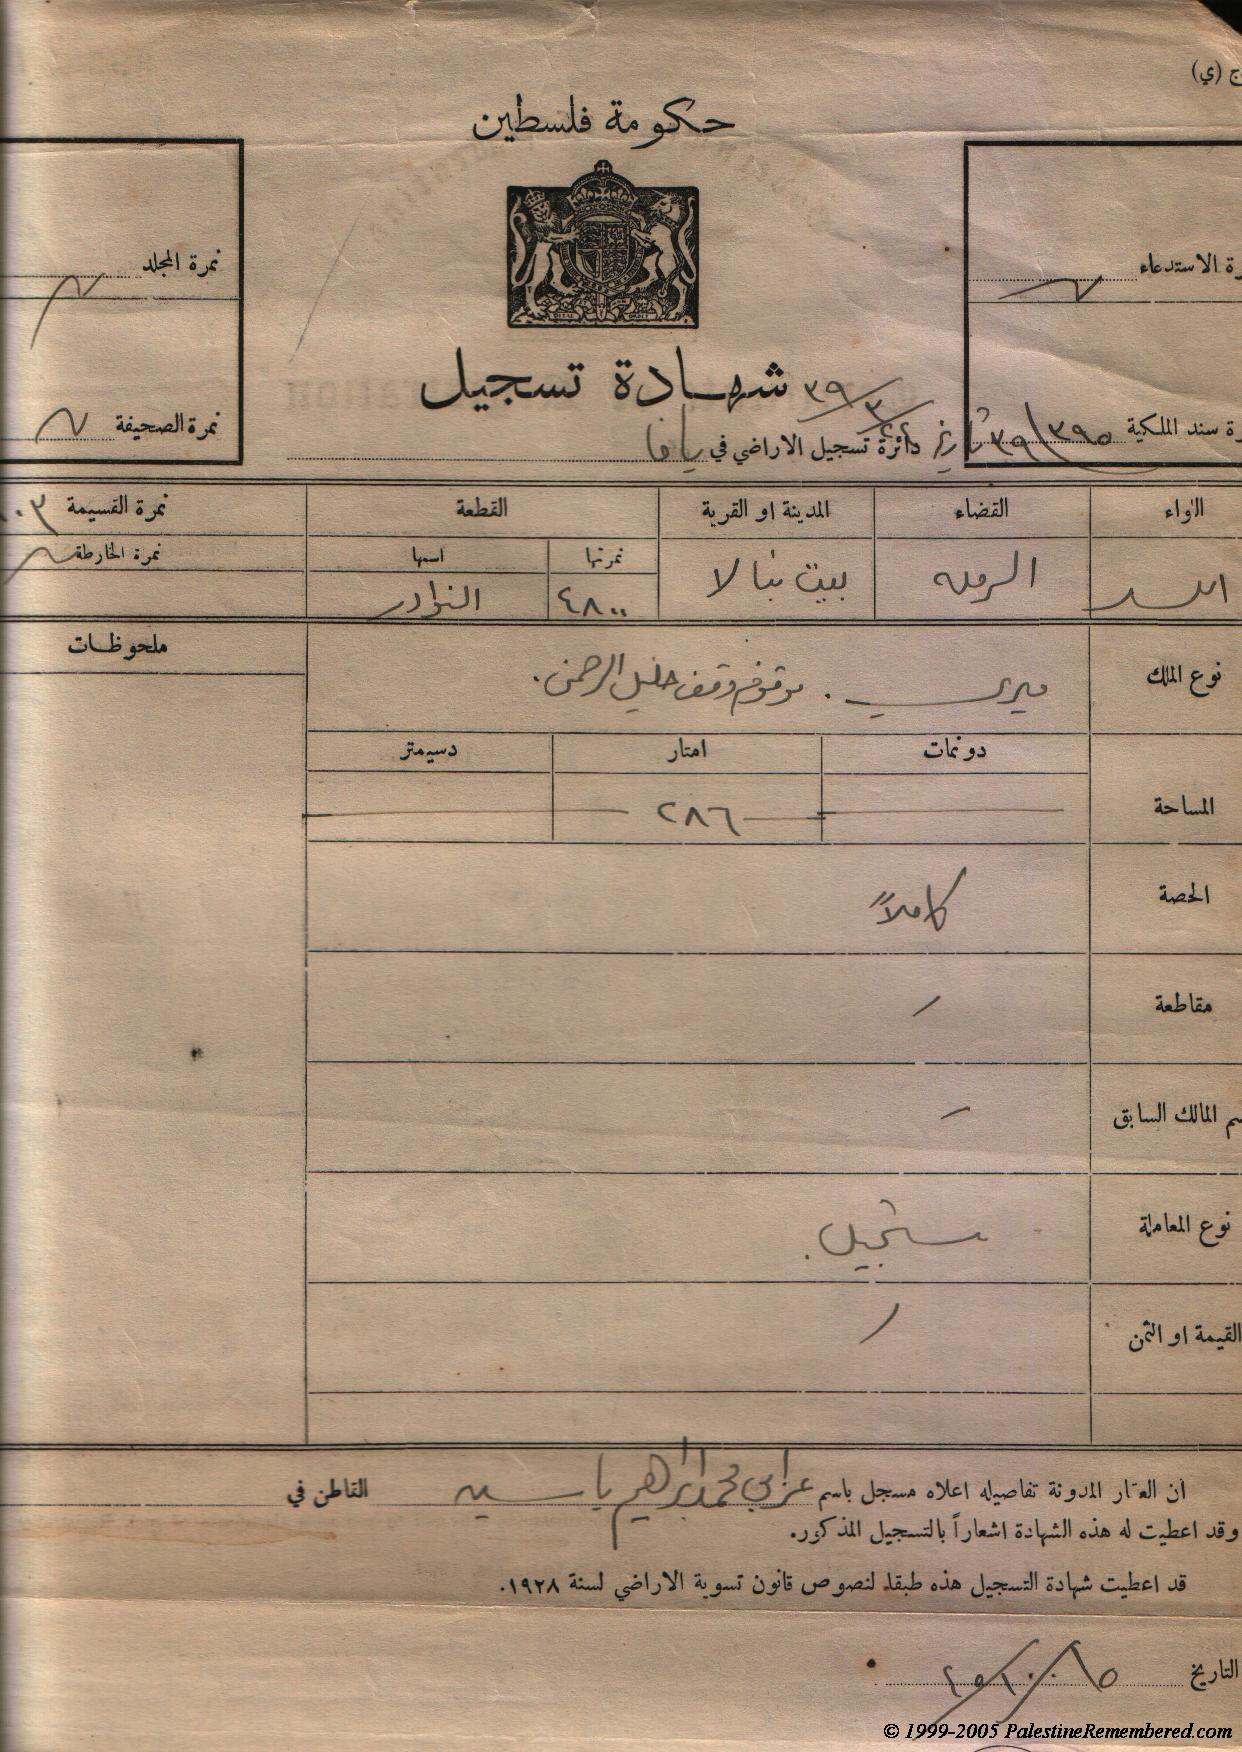 ج (ي)
حكومة فلسطين
نمرة المجلد
رة الاستدعاء
شهادة تسجيل
نمرة الصحيفة
رة سند الملكية ٣٩/٣٩٥ تاريخ ٢٢/٣/٣٩
دائرة تسجيل الاراضي في يافا
اللواء
القضاء
المدينة او القرية
القطعة
نمرة القسيمة
نمرتها
اسمها
نمرة الخارطة
اللد
الرمله
بيت نبالا
٤٨٠٠
النوادر
ملحوظات
نوع الملك
ميري . موقوفه وقف خليل الرحمن .
دونمات
امتار
دسيمتر
المساحة
٢٨٦
الحصة
كاملاً
مقاطعة
سم المالك السابق
نوع المعاملة
تسجيل .
القيمة او الثمن
ان العقار المدونة تفاصيله اعلاه مسجل باسم عزات محمد ابراهيم ياسين القاطن في
وقد اعطيت له هذه الشهادة اشعاراً بالتسجيل المذكور.
قد اعطيت شهادة التسجيل هذه طبقاً لنصوص قانون تسوية الاراضي لسنة ١٩٢٨.
التاريخ
© 1999-2005 PalestineRemembered.com